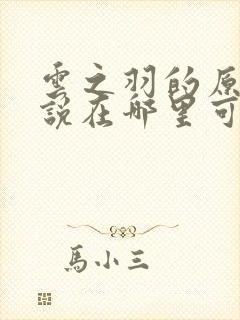 雲之羽的原
說在哪里可
馬小三